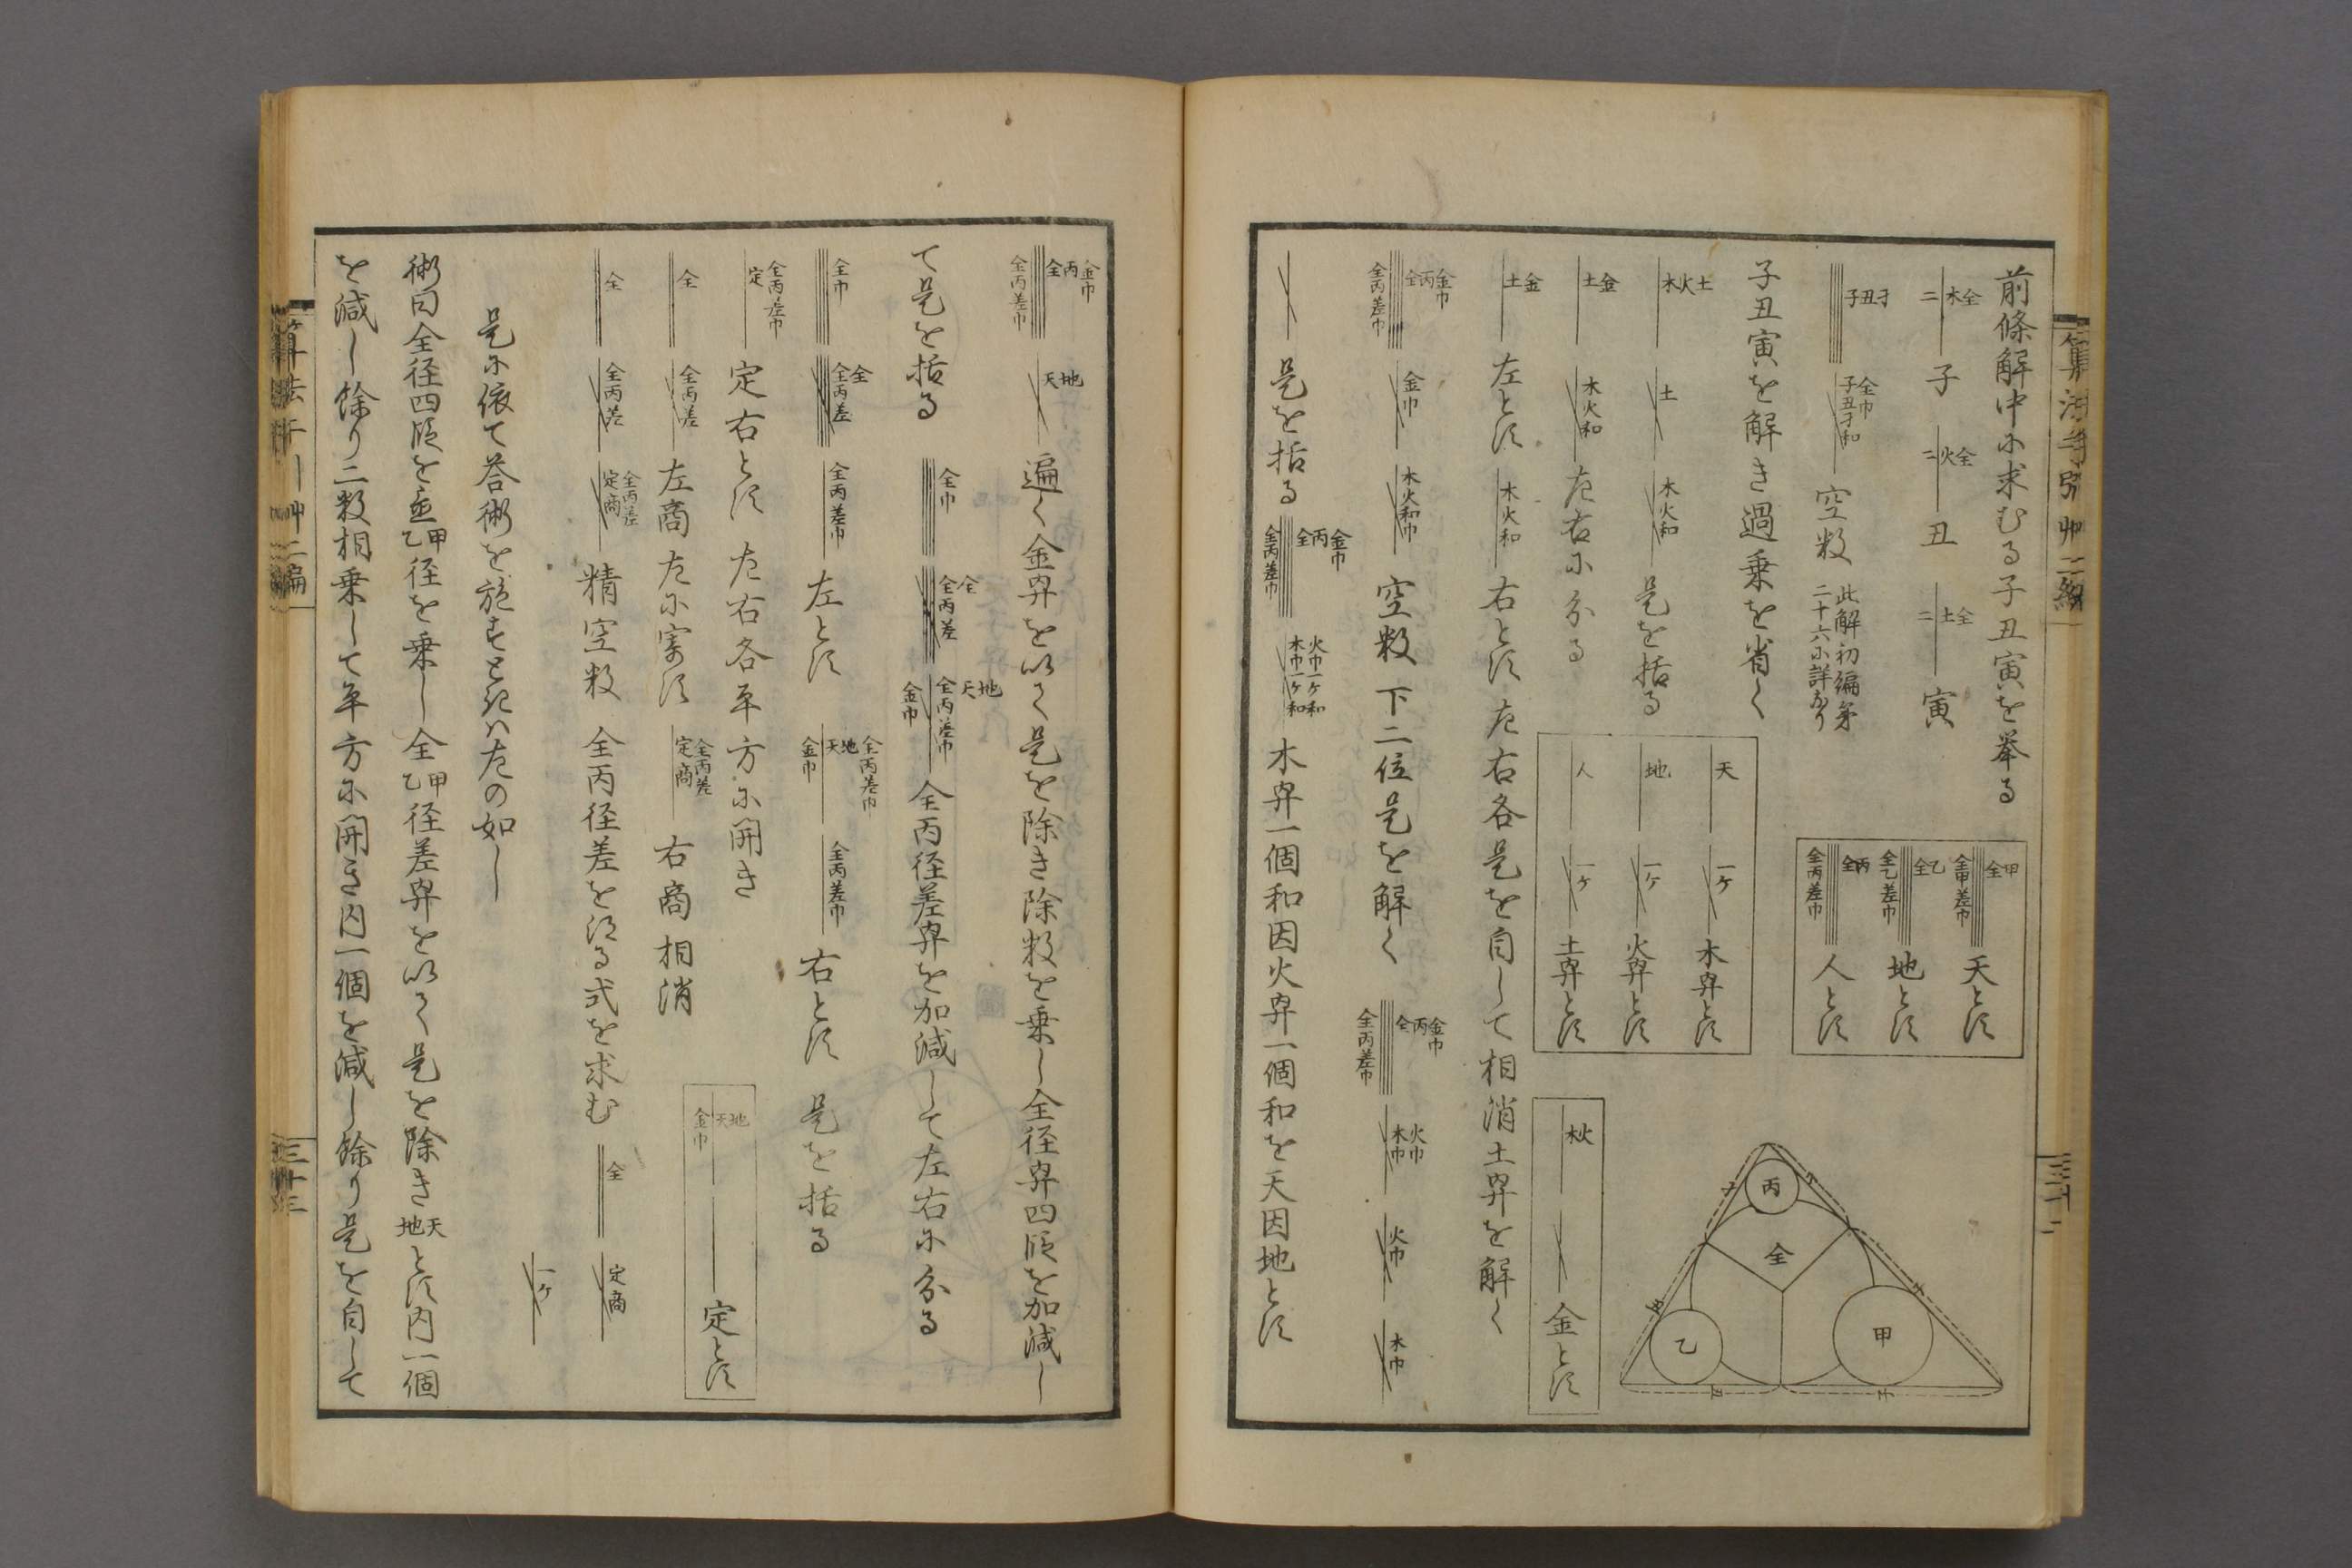 前條解中尓求むる子丑寅を挙る
二 木全 子 二 火全 丑 二 土全 寅
子丑孑 子丑孑和 全巾 空数 此解初編第
二十六尓詳なり
子丑寅を解き過乗を省く
全甲差巾 全甲 天とす
全乙差巾 全乙 地とす
全丙差巾 全丙 人とす
木火土 土 木火和 是を括る
天 一ケ 木巾とす
地 一ケ 火巾とす
人 一ケ 土巾とす
土金 木火和 左右尓分る
土金 左とす 木火和 右とす 左右各是を自して相消土巾を解く
木火 金とす
全丙差巾 全丙金巾 金巾 木火和巾 空数 下二位是を解く 全丙差巾 全丙金巾 木巾火巾 火巾 木巾
是を括る 全丙差巾 全丙金巾 木巾一ケ和 火巾一ケ和 木巾一個和因火巾一個和を天因地とす
丙
全
乙
甲
全丙差巾 全丙金巾 天地 遍く金巾を以て是を除き除数を乗し全径巾四段を加減し
て是を括る 全巾 全丙差全 金巾 全丙差巾 天地 全丙径差巾を加減して左右尓分る
全巾 全丙差全 全丙差巾 左とす 金巾 天地 全丙差巾 全丙差巾 右とす 是を括る
定 全丙差巾 定右とす 左右各平方尓開き
全 全丙差 左商左尓寄す 定商 全丙差 右商相消
金巾 天地 定とす
全 全丙差 定商 全丙差 精空数 全丙径差を得る式を求む 全 定商
一ケ
是尓依て荅術を施すときハ左の如し
術曰全径四段を置甲乙径を乗し全甲乙径差巾を以て是を除き天地とす内一個
を減し餘り二数相乗して平方尓開き内一個を減し餘り是を自して
三十二
三十三